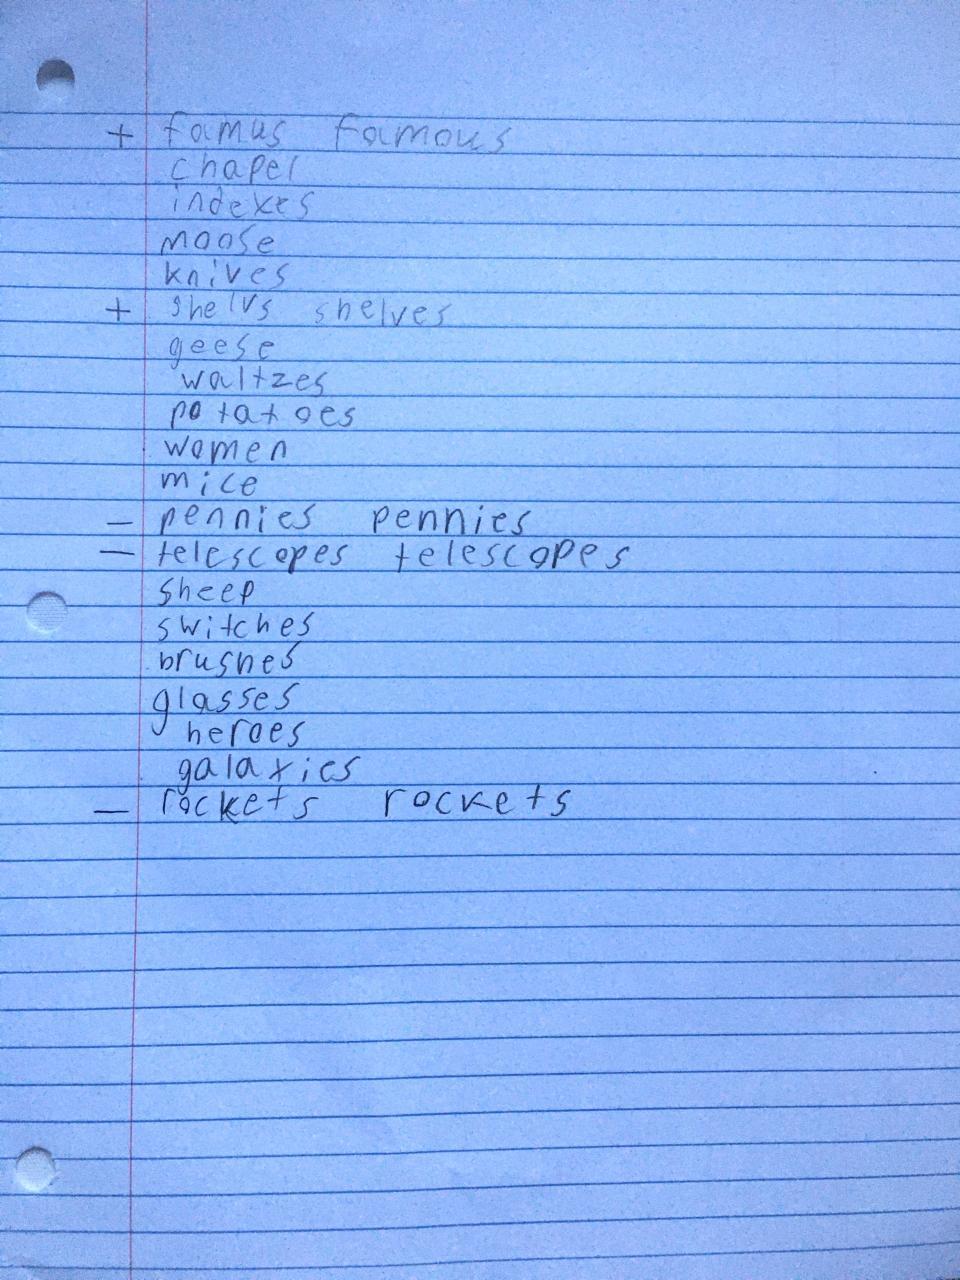 + famus famous
chapel
indexes
moose
knives
+ shelvs shelves
geese
waltzes
potatoes
women
mice
- pennies pennies
- telescopes telescopes
sheep
switches
brushes
glasses
heroes
galaxies
- rockets rockets